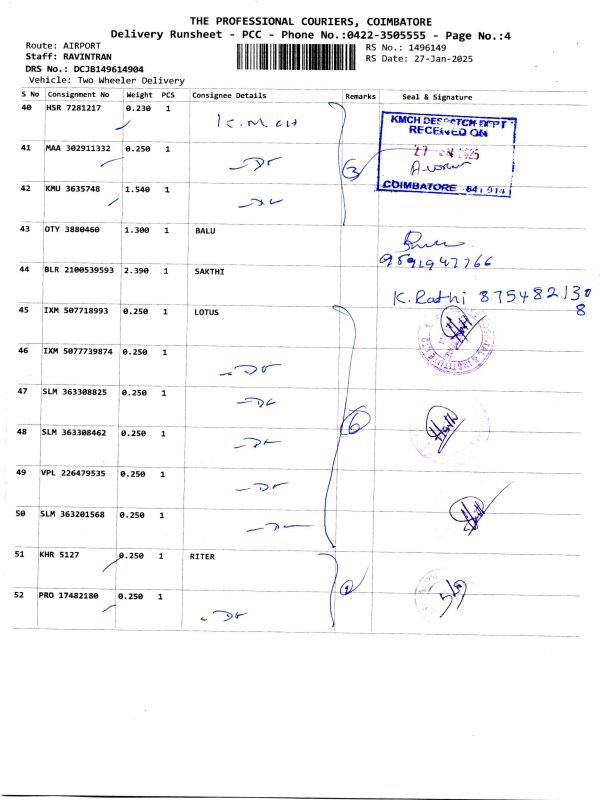 THE PROFESSIONAL COURIERS, COIMBATORE
Delivery Runsheet - PCC - Phone No.:0422-3505555 - Page No.:4
Route: AIRPORT RS No.: 1496149
Staff: RAVINTRAN RS Date: 27-Jan-2025
DRS No.: DCJB149614904
Vehicle: Two Wheeler Delivery
S No Consignment No Weight PCS Consignee Details Remarks Seal & Signature
40 HSR 7281217 0.230 1 K.M.CH
KMCH DESPATCH DEPT
RECEIVED ON
41 MAA 302911332 0.250 1
3
42 KMU 3635748 1.540 1
COIMBATORE - 641 014
43 OTY 3880460 1.300 1 BALU
44 BLR 2100539593 2.390 1 SAKTHI
K. Rathi 875482130
8
45 IXM 507718993 0.250 1 LOTUS
46 IXM 5077739874 0.250 1
47 SLM 363308825 0.250 1
6
48 SLM 363308462 0.250 1
49 VPL 226479535 0.250 1
50 SLM 363201568 0.250 1
51 KHR 5127 0.250 1 RITER
52 PRO 17482180 0.250 1